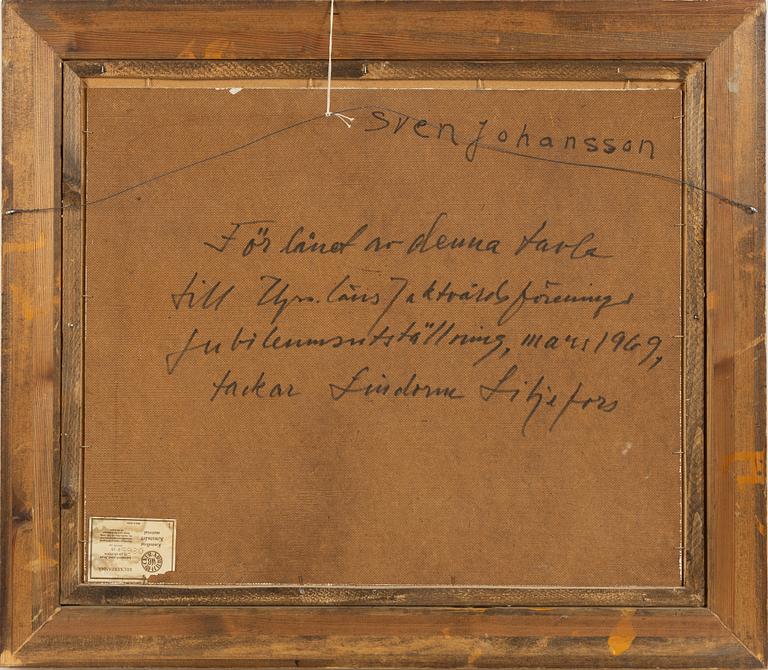 Sven Johansson
För lånet av denna tavla
till Ups. läns Jaktvårdsförenings
jubileumsutställning, mars 1969,
tackar Lindorm Liljefors
BECKERS